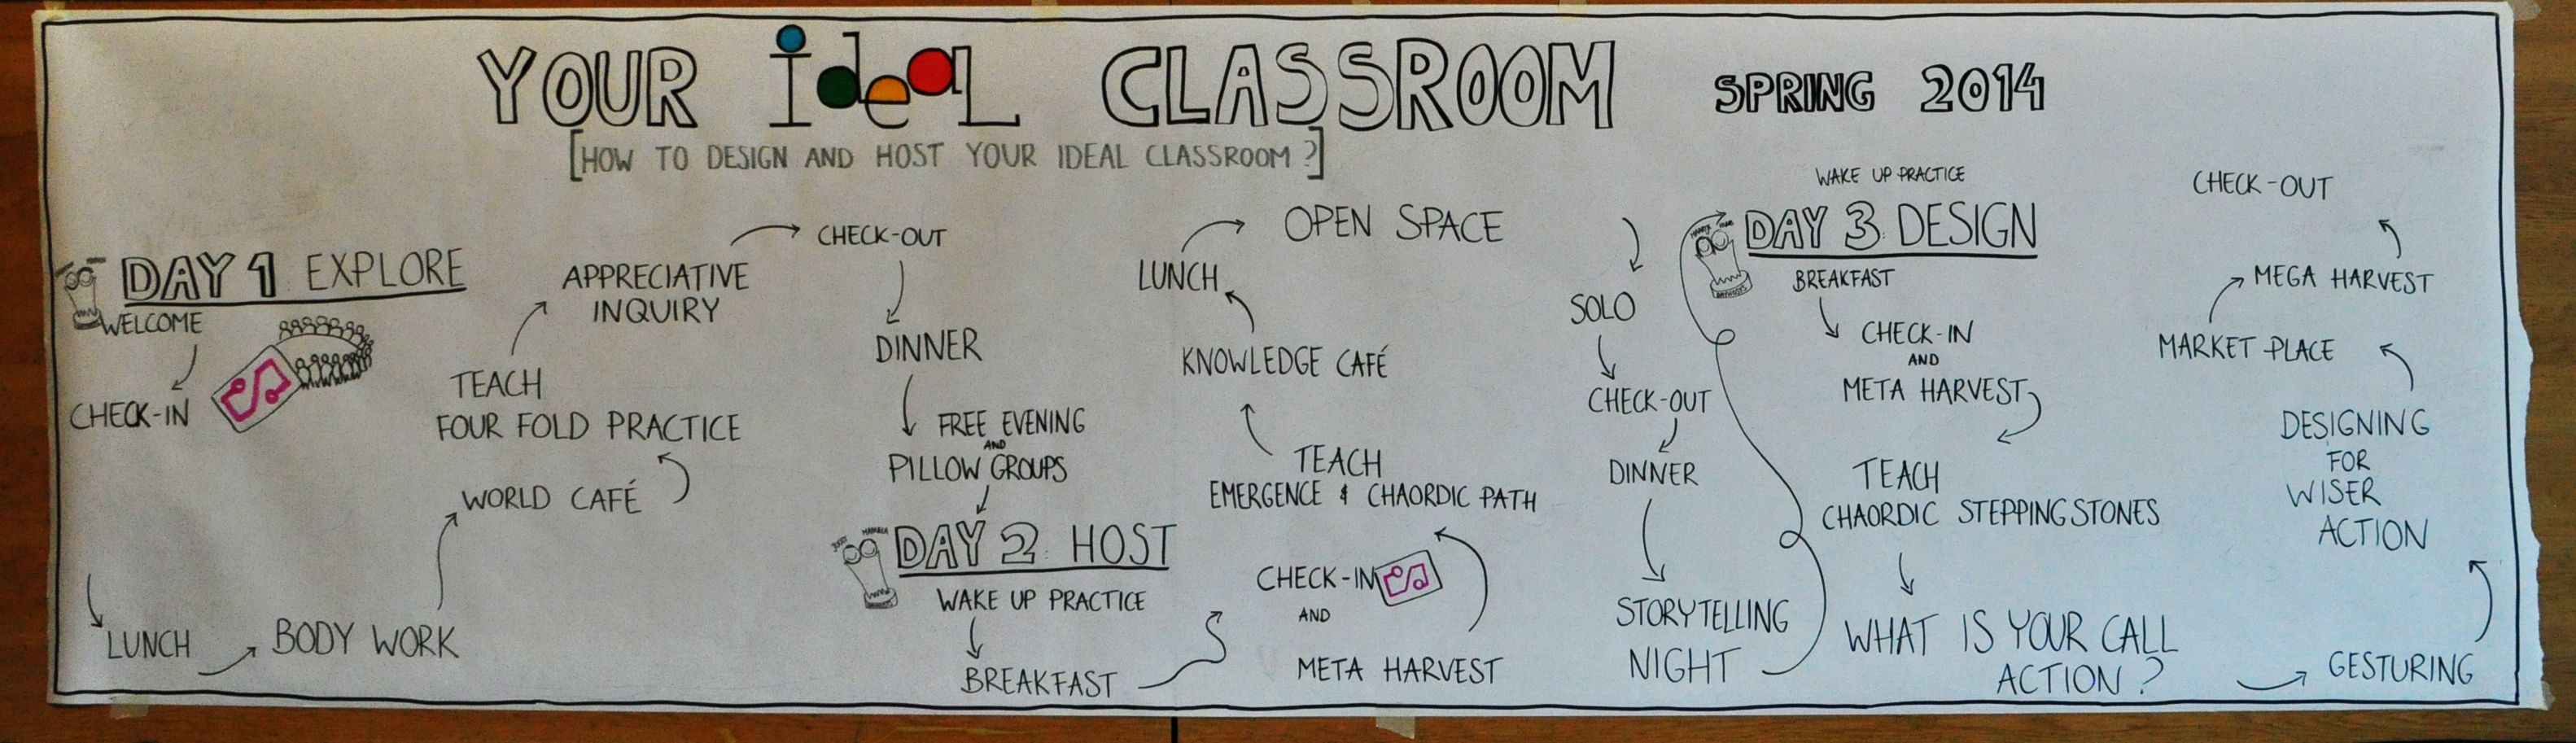 YOUR ideaL CLASSROOM SPRING 2014
[HOW TO DESIGN AND HOST YOUR IDEAL CLASSROOM ?]
DAY 1 EXPLORE
WELCOME
CHECK-IN
LUNCH
BODY WORK
WORLD CAFÉ
TEACH
FOUR FOLD PRACTICE
APPRECIATIVE
INQUIRY
CHECK-OUT
DINNER
FREE EVENING
AND
PILLOW GROUPS
DAY 2 HOST
WAKE UP PRACTICE
BREAKFAST
CHECK-IN
AND
META HARVEST
TEACH
EMERGENCE & CHAORDIC PATH
KNOWLEDGE CAFÉ
LUNCH
OPEN SPACE
SOLO
CHECK-OUT
DINNER
STORYTELLING
NIGHT
WAKE UP PRACTICE
DAY 3 DESIGN
BREAKFAST
CHECK-IN
AND
META HARVEST
TEACH
CHAORDIC STEPPINGSTONES
WHAT IS YOUR CALL
ACTION ?
GESTURING
DESIGNING
FOR
WISER
ACTION
MARKET PLACE
MEGA HARVEST
CHECK-OUT